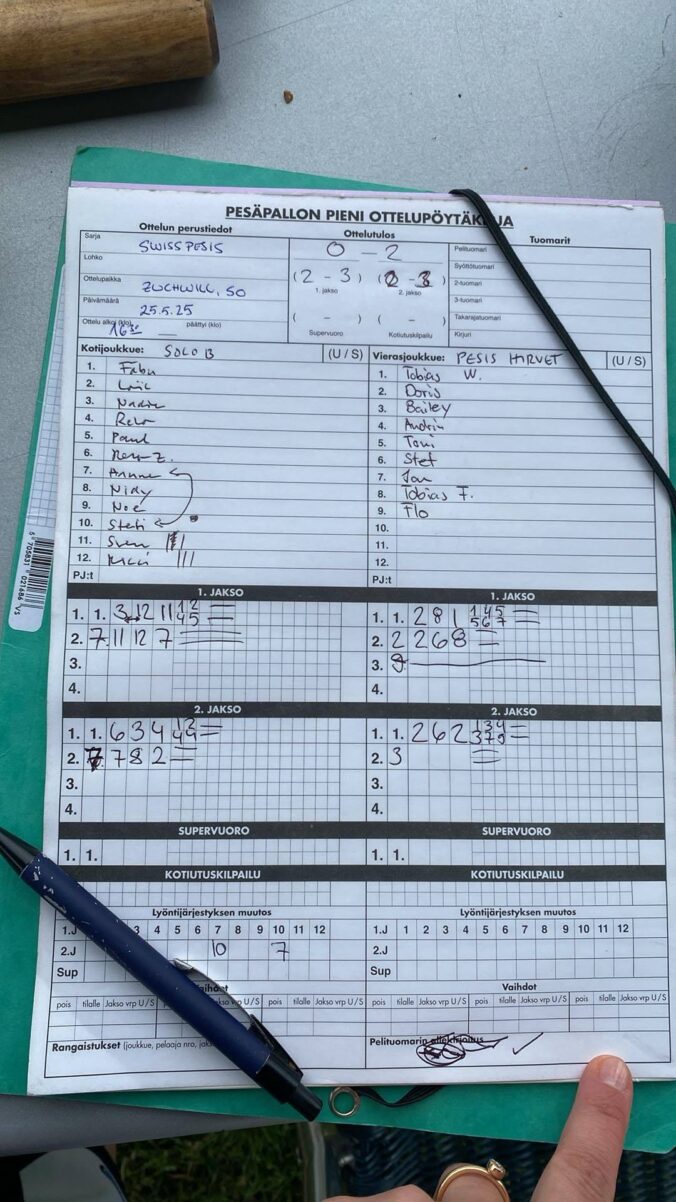 PESÄPALLON PIENI OTTELUPÖYTÄK JA
Ottelun perustiedot Ottelutulos Tuomarit
Sarja SWISSPESIS
Lohko
Ottelupaikka ZUCHWILL, SO
Päivämäärä 25.5.25
Ottelu alkoi (klo) 16 30 päättyi (klo)
0 - 2
(2 - 3) (2 - 3)
1. jakso 2. jakso
( - ) ( - )
Supervuoro Kotiutuskilpailu
Pelituomari
Syöttötuomari
2-tuomari
3-tuomari
Takarajatuomari
Kirjuri
Kotijoukkue: SOLO B (U / S)
1. Fabu
2. Loic
3. Nadine
4. Reto
5. Paul
6. Reto Z.
7.
8. Nidy
9. Noe
10. Steti
11. Sven
12.
PJ:t
Vierasjoukkue: PESIS HIRVET (U / S)
1. Tobias W.
2. Doris
3. Bailey
4. Andrin
5. Toni
6. Stef
7. Jan
8. Tobias F.
9. Flo
10.
11.
12.
PJ:t
1. JAKSO
1. 1. 3 12 11 1 2 4 5
2. 7. 11 12 7
3.
4.
1. JAKSO
1. 1. 2 8 1 1 4 5 5 6 7
2. 2 2 6 8
3. 9
4.
2. JAKSO
1. 1. 6 3 4 1 2 4 4
2. 7 7 8 2
3.
4.
2. JAKSO
1. 1. 2 6 2 1 3 4 3 7 9
2. 3
3.
4.
SUPERVUORO SUPERVUORO
1. 1. 1. 1.
KOTIUTUSKILPAILU KOTIUTUSKILPAILU
Lyöntijärjestyksen muutos Lyöntijärjestyksen muutos
1.J 3 4 5 6 7 8 9 10 11 12 1.J 1 2 3 4 5 6 7 8 9 10 11 12
2.J 10 7 2.J
Sup Sup
Vaihdot Vaihdot
pois tilalle Jakso vrp U/S pois tilalle Jakso vrp U/S pois tilalle Jakso vrp U/S
pois tilalle Jakso vrp U/S pois tilalle Jakso vrp U/S pois tilalle Jakso vrp U/S
Rangaistukset (joukkue, pelaaja nro, jak
Pelituomarin allekirjoitus
6 705831 021686 VS